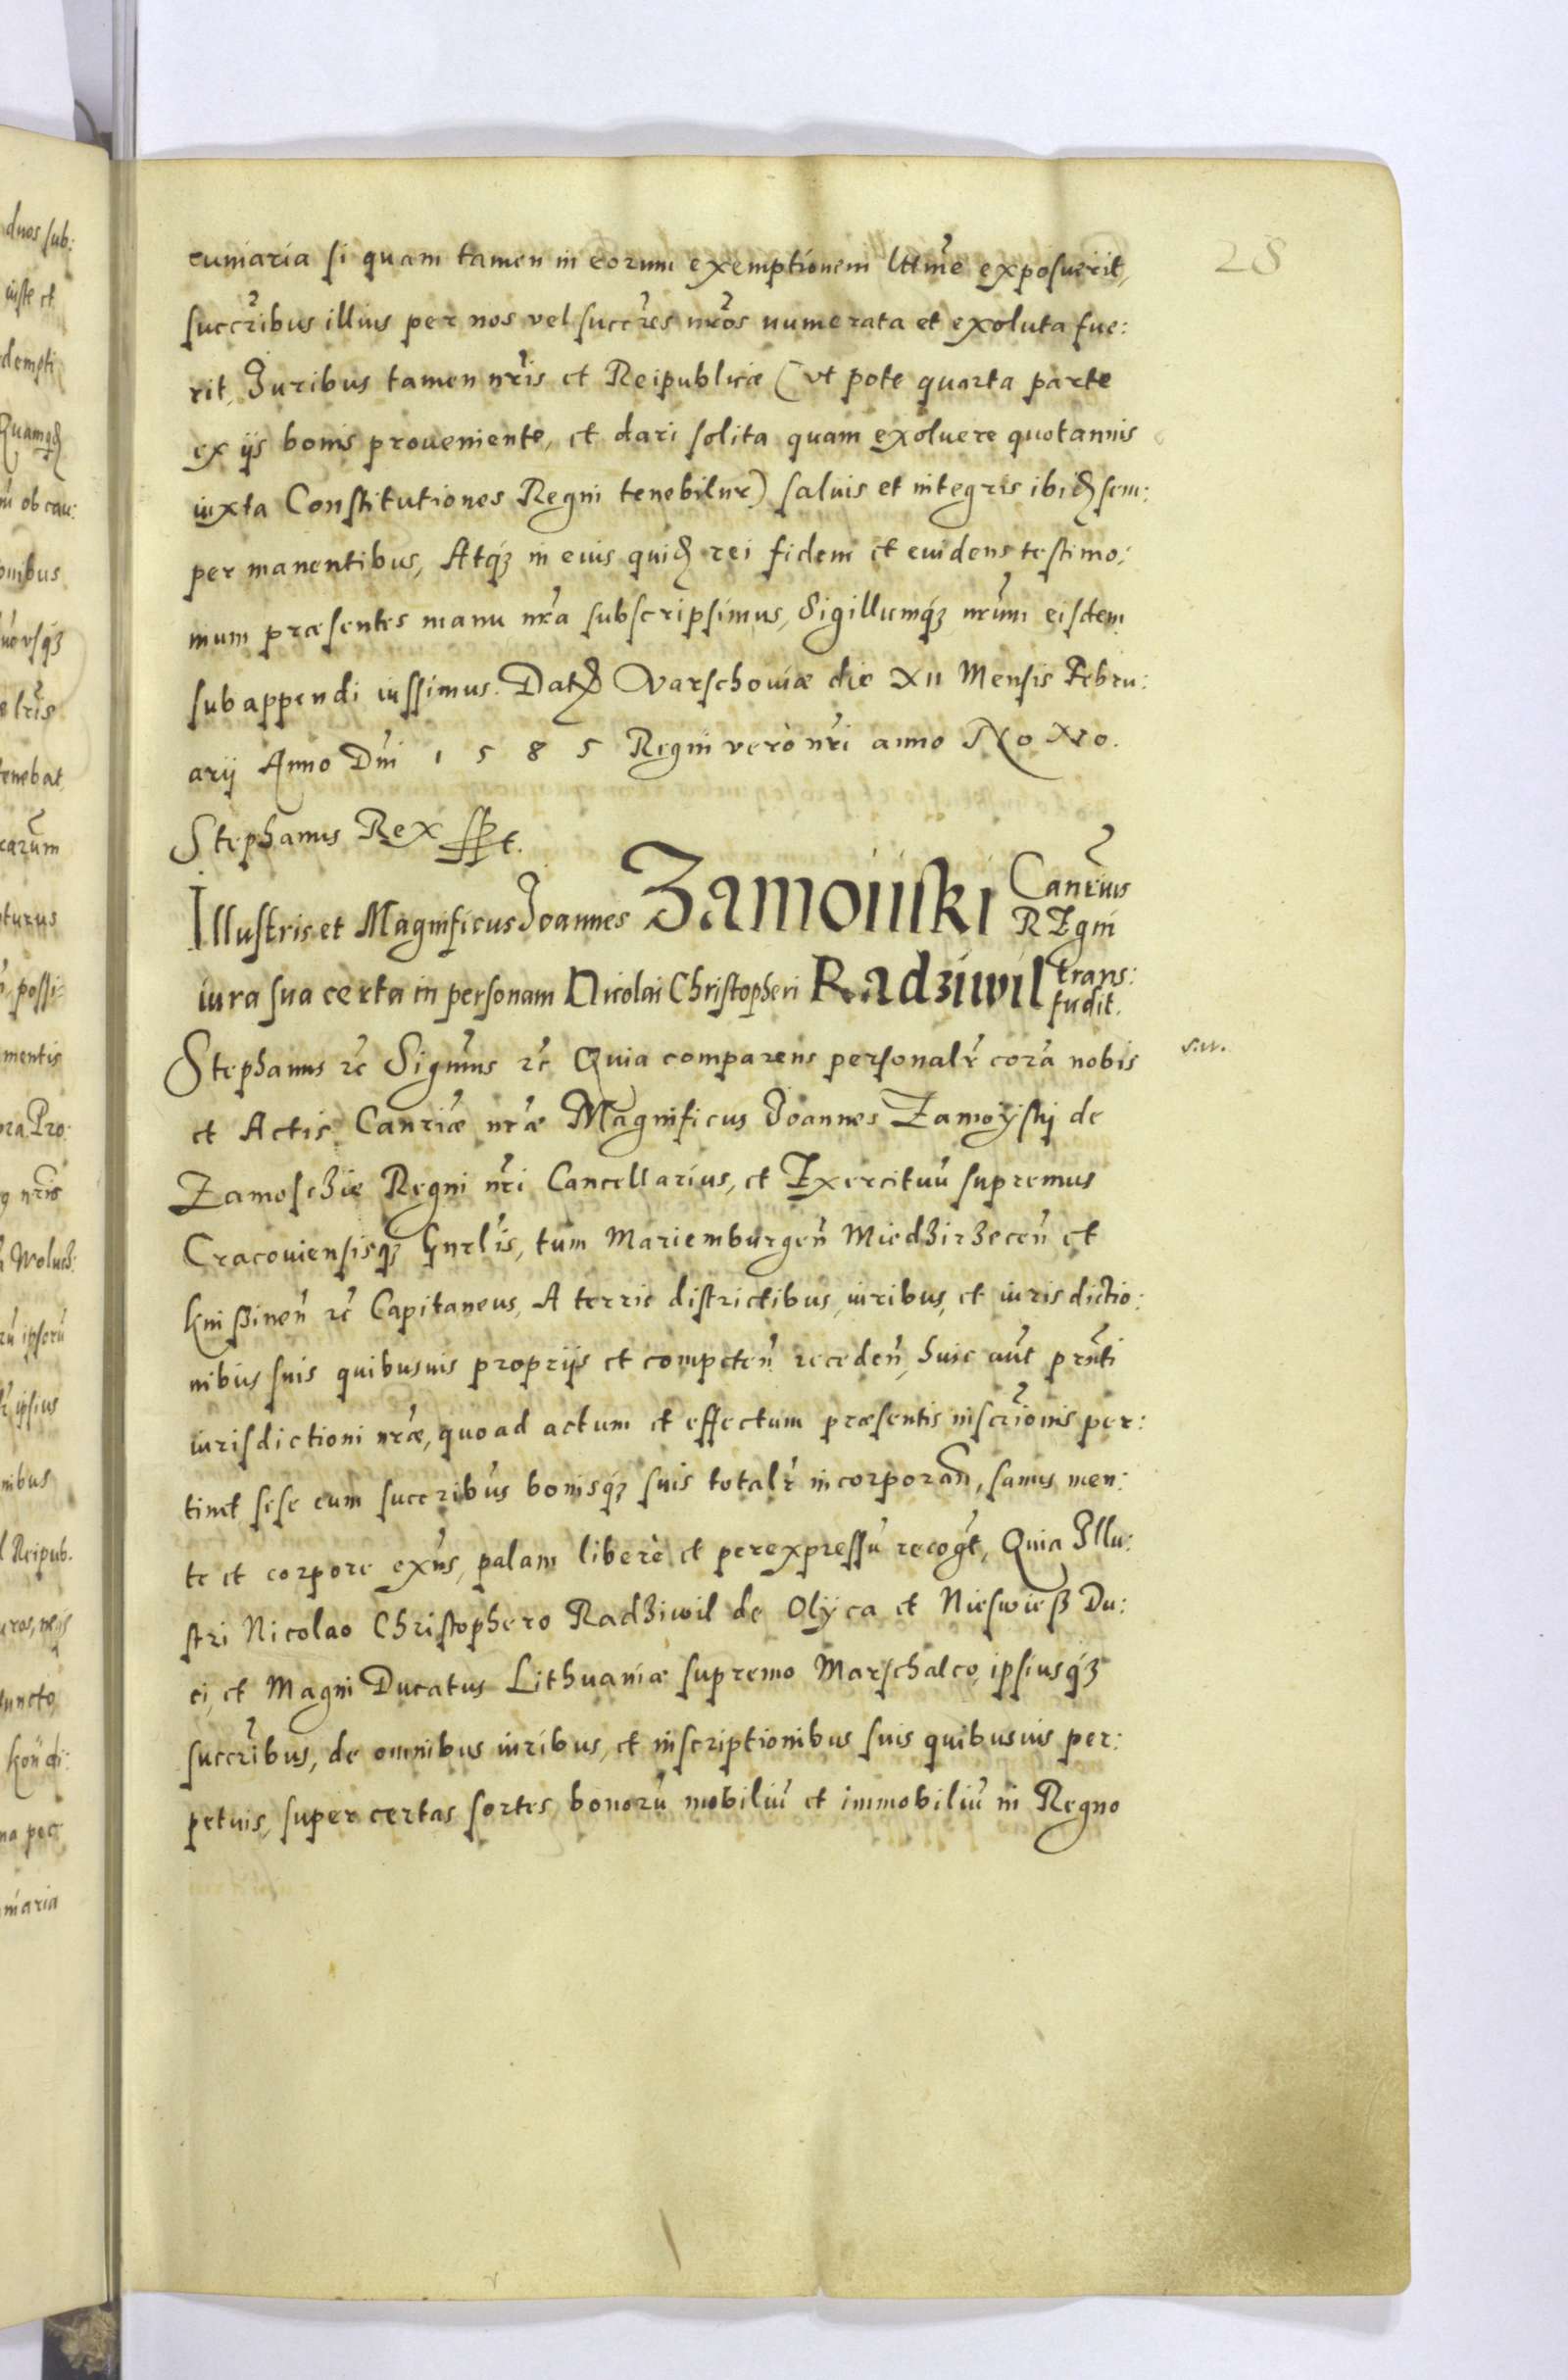 28
cuniaria si quam tamen in eorum exemptionem lttme exposuerit,
succribus illius per nos vel succres nros numerata et exoluta fue:
rit, Juribus tamen nris et Reipublicæ (vt pote quarta parte
ex ijs bonis proueniente, et dari solita quam exoluere quotannis
iuxta Constitutiones Regni tenebitur) saluis et integris ibid sem:
per manentibus, Atq3 in eius quid rei fidem et euidens testimo:
nium præsentes manu nra subscripsimus, Sigillumq3 nrum eisdem
subappendi iussimus. Dat Varschouiæ die XII Mensis Febru:
arij Anno Dni 1 5 8 5 Regni verò nri anno Nono.
Stephanus Rex sst.
Illustris et Magnificus Joannes Zamoiiski Canrius REgni
iura sua certa in personam Nicolai Christopheri Radziwil trans: fudit.
Stephanus rc Signmus rc Quia comparens personalr cora nobis
et Actis Canriæ nræ Magnificus Joannes Zamoÿskj de
Zamoschie Regni nri Cancellarius, et Exercituu supremus
Cracouiensisq3 Gnrlis, tum Mariemburgen Miedzirzecen et
Knißinen rc Capitaneus, A terris districtibus, iuribus, et iuris dictio:
nibus suis quibusuis proprijs et competen receden, huic aut prnti
iurisdictioni nræ, quo ad actum et effectum præsentis inscrionis per:
tinet sese cum succribus bonisq3 suis totalr incorporan, sanus men:
te et corpore exns, palam liberè et perexpressu recogt, Quia Illu:
stri Nicolao Christophero Radziwil de Olÿca et Nieswieß Du:
ci, et Magni Ducatus Lithuaniæ supremo Marschalco, ipsiusq3
succribus, de omnibus iuribus, et inscriptionibus suis quibusuis per:
petuis, super certas sortes bonoru mobiliu et immobiliu in Regno